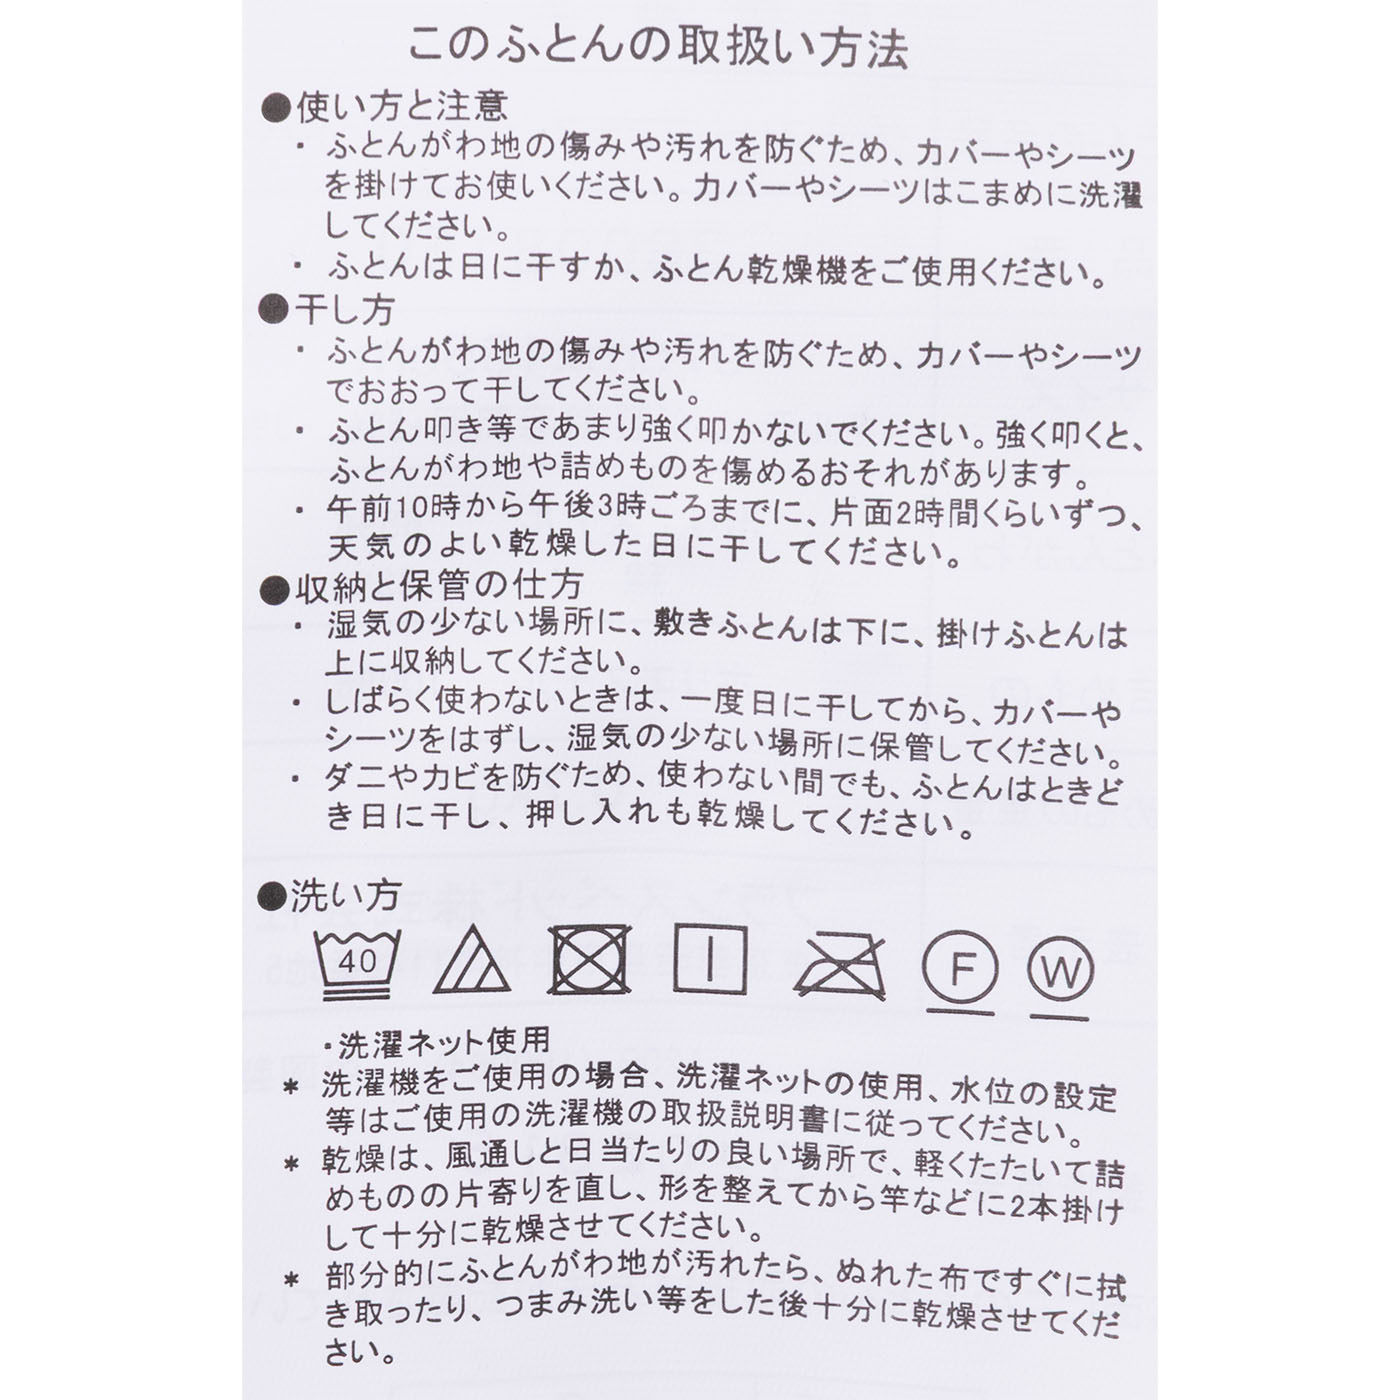 このふとんの取扱い方法
●使い方と注意
・ふとんがわ地の傷みや汚れを防ぐため、カバーやシーツ
を掛けてお使いください。カバーやシーツはこまめに洗濯
してください。
・ふとんは日に干すか、ふとん乾燥機をご使用ください。
●干し方
・ふとんがわ地の傷みや汚れを防ぐため、カバーやシーツ
でおおって干してください。
・ふとん叩き等であまり強く叩かないでください。強く叩くと、
ふとんがわ地や詰めものを傷めるおそれがあります。
・午前10時から午後3時ごろまでに、片面2時間くらいずつ、
天気のよい乾燥した日に干してください。
●収納と保管の仕方
・湿気の少ない場所に、敷きふとんは下に、掛けふとんは
上に収納してください。
・しばらく使わないときは、一度日に干してから、カバーや
シーツをはずし、湿気の少ない場所に保管してください。
・ダニやカビを防ぐため、使わない間でも、ふとんはときど
き日に干し、押し入れも乾燥してください。
●洗い方
40 F W
・洗濯ネット使用
* 洗濯機をご使用の場合、洗濯ネットの使用、水位の設定
等はご使用の洗濯機の取扱説明書に従ってください。
* 乾燥は、風通しと日当たりの良い場所で、軽くたたいて詰
めものの片寄りを直し、形を整えてから竿などに2本掛け
して十分に乾燥させてください。
* 部分的にふとんがわ地が汚れたら、ぬれた布ですぐに拭
き取ったり、つまみ洗い等をした後十分に乾燥させてくだ
さい。